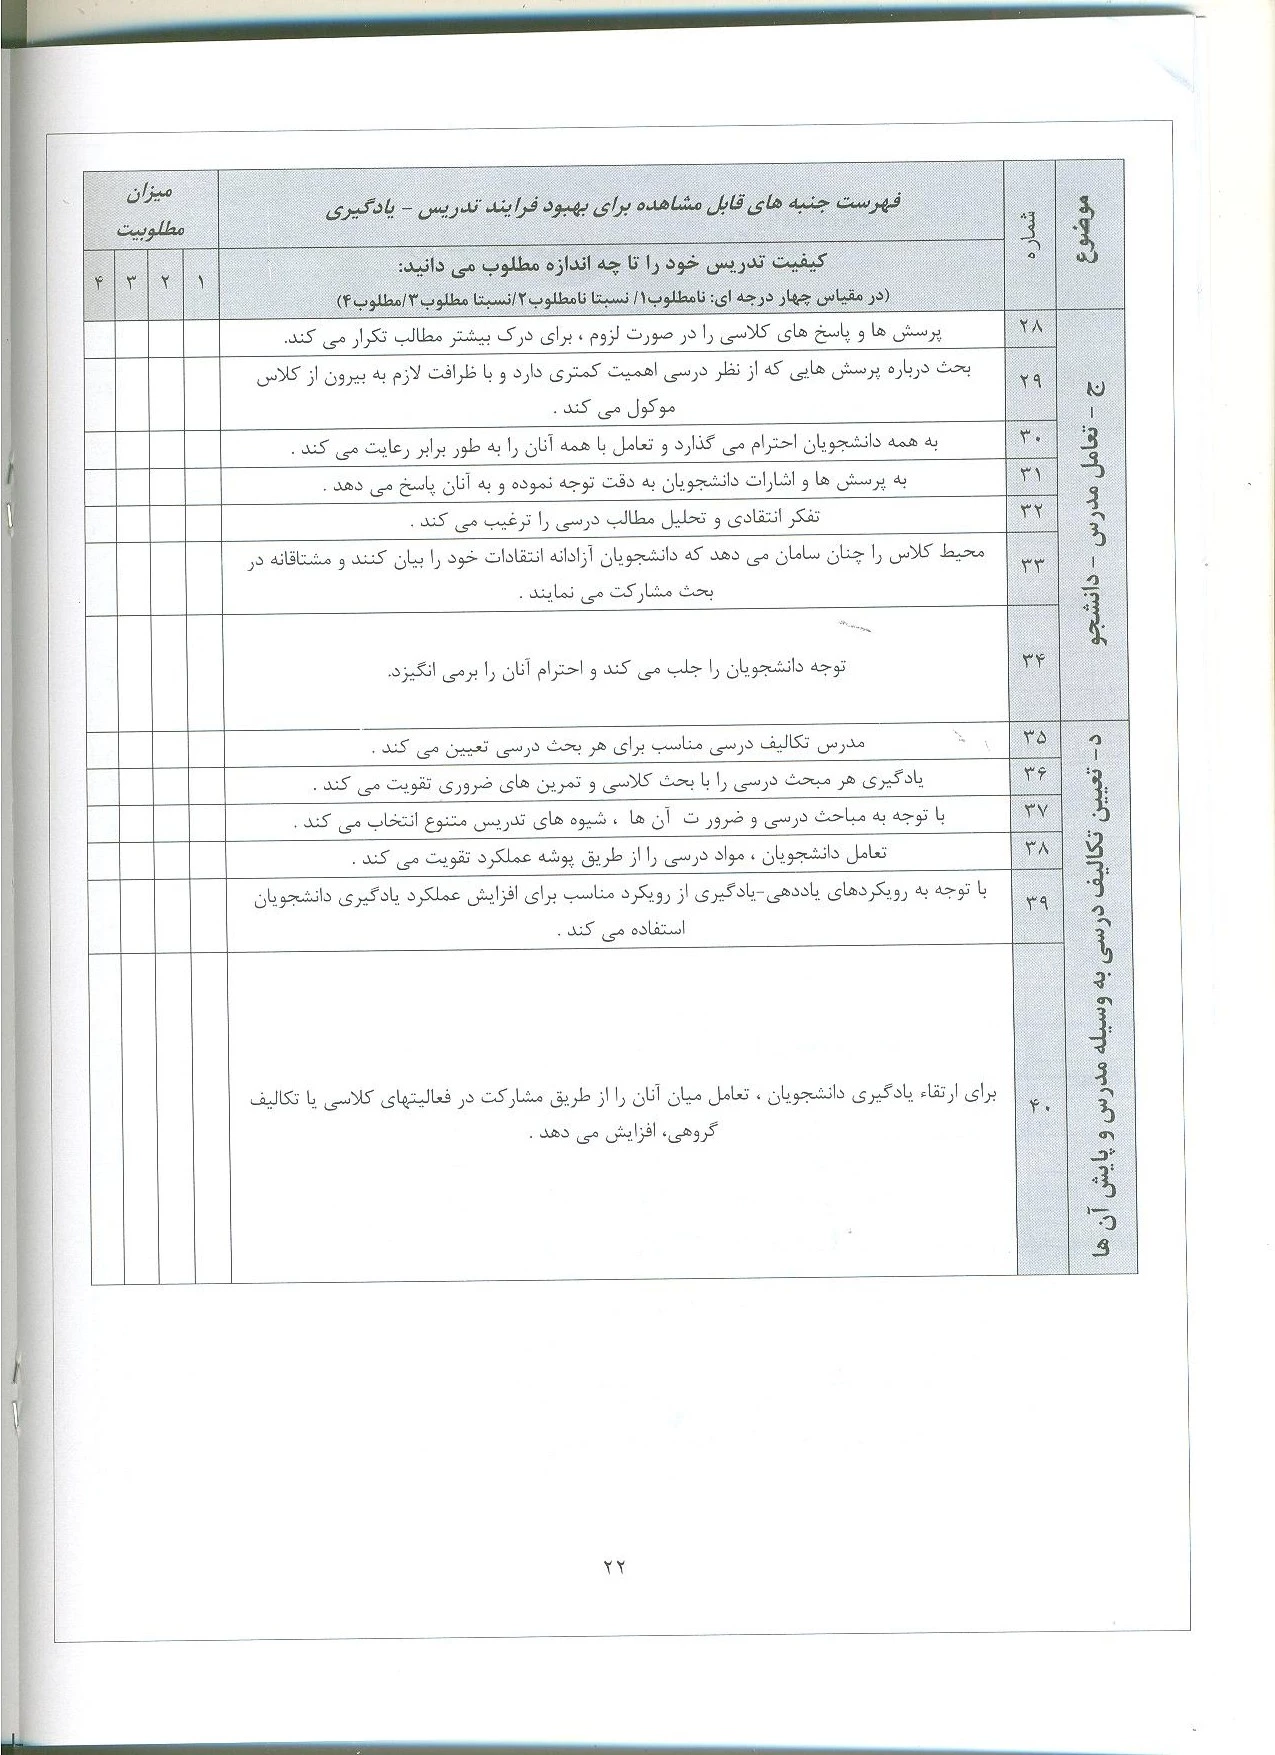 موضوع
شماره
فهرست جنبه های قابل مشاهده برای بهبود فرایند تدریس – یادگیری
میزان
مطلوبیت
کیفیت تدریس خود را تا چه اندازه مطلوب می دانید:
(در مقیاس چهار درجه ای: نامطلوب۱/ نسبتا نامطلوب۲/نسبتا مطلوب۳/مطلوب۴)
۱ ۲ ۳ ۴
ج – تعامل مدرس – دانشجو
۲۸ پرسش ها و پاسخ های کلاسی را در صورت لزوم ، برای درک بیشتر مطالب تکرار می کند.
۲۹ بحث درباره پرسش هایی که از نظر درسی اهمیت کمتری دارد و با ظرافت لازم به بیرون از کلاس
موکول می کند .
۳۰ به همه دانشجویان احترام می گذارد و تعامل با همه آنان را به طور برابر رعایت می کند .
۳۱ به پرسش ها و اشارات دانشجویان به دقت توجه نموده و به آنان پاسخ می دهد .
۳۲ تفکر انتقادی و تحلیل مطالب درسی را ترغیب می کند .
۳۳ محیط کلاس را چنان سامان می دهد که دانشجویان آزادانه انتقادات خود را بیان کنند و مشتاقانه در
بحث مشارکت می نمایند .
۳۴ توجه دانشجویان را جلب می کند و احترام آنان را برمی انگیزد.
د- تعیین تکالیف درسی به وسیله مدرس و پایش آن ها
۳۵ مدرس تکالیف درسی مناسب برای هر بحث درسی تعیین می کند .
۳۶ یادگیری هر مبحث درسی را با بحث کلاسی و تمرین های ضروری تقویت می کند .
۳۷ با توجه به مباحث درسی و ضرور ت آن ها ، شیوه های تدریس متنوع انتخاب می کند .
۳۸ تعامل دانشجویان ، مواد درسی را از طریق پوشه عملکرد تقویت می کند .
۳۹ با توجه به رویکردهای یاددهی-یادگیری از رویکرد مناسب برای افزایش عملکرد یادگیری دانشجویان
استفاده می کند .
۴۰ برای ارتقاء یادگیری دانشجویان ، تعامل میان آنان را از طریق مشارکت در فعالیتهای کلاسی یا تکالیف
گروهی، افزایش می دهد .
۲۲